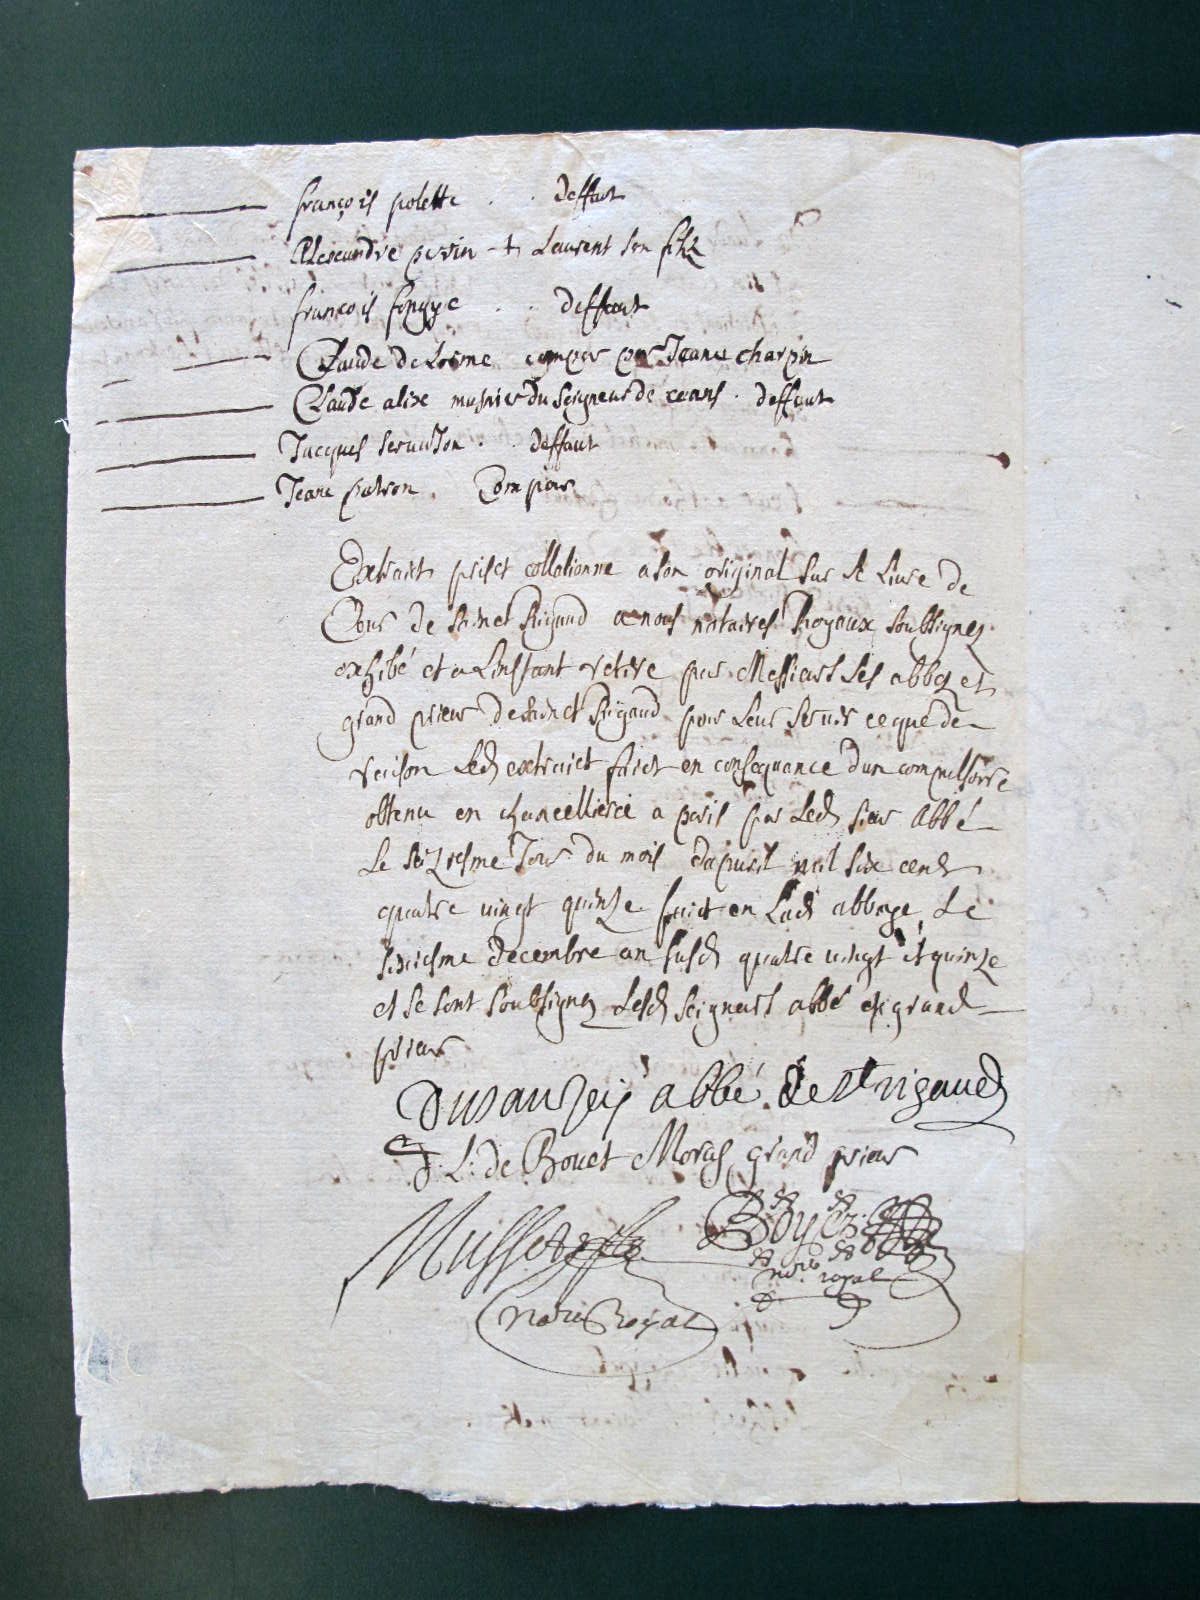 françois polette . . deffaut
Alexandre perrin + Laurent son filz
françois fongye . . deffaut
Claude de Lorme compar par Jeane charpin
Claude alixe musnier du Seigneur de ceans . deffaut
Jacques . . deffaut
Jeane patron Compar
Extraict pris et collationne a son original sur le Livre de
Cour de sainct Rigaud a nous notaires Royaux soubsignez
exhibé et a Linstant retire par Messieurs les abbez et
grand prieur de sainct Rigaud pour Leur servir ce que de
raison Led extraict faict en consequance dun compulsoire
obtenu en chancellerie a paris par Led sieur Abbé
Le seiziesme Jour du mois mil six cent
quatre vingt quinze faict en Lad abbaye Le
sixiesme decembre an susd quatre vingt et quinze
et se sont soubsignez Lesd seigneurs abbé et grand
prieur
abbé de st rigaud
L. de Bouet Moras grand prieur
Musset Boyer
notre royal
notre Royal